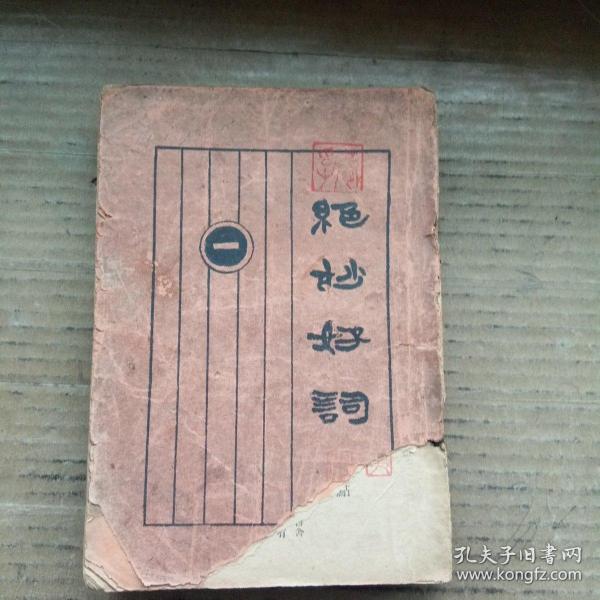 絕妙好詞
一
孔夫子旧书网
www.kongfz.com